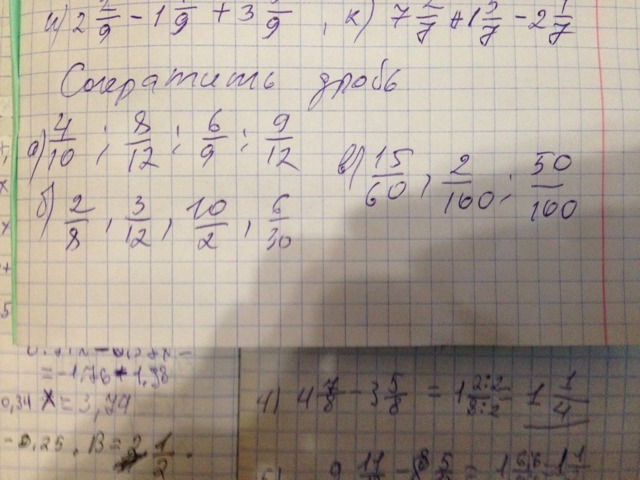 2 /9 - 1 /9 + 3 /9 , к) 7 /7 + 1 /7 - 2 /7
Сократить дробь
а) 4/10 ; 8/12 ; 6/9 ; 9/12
б) 2/8 , 3/12 , 10/2 , 6/30
в) 15/60 , 2/100 ; 50/100
= -1,76 + 1,98
0,34 x = 3,74
-0,25. B = 1/2
4) 4 7/8 - 3 5/8 = 1 2:2/8:2 = 1 1/4